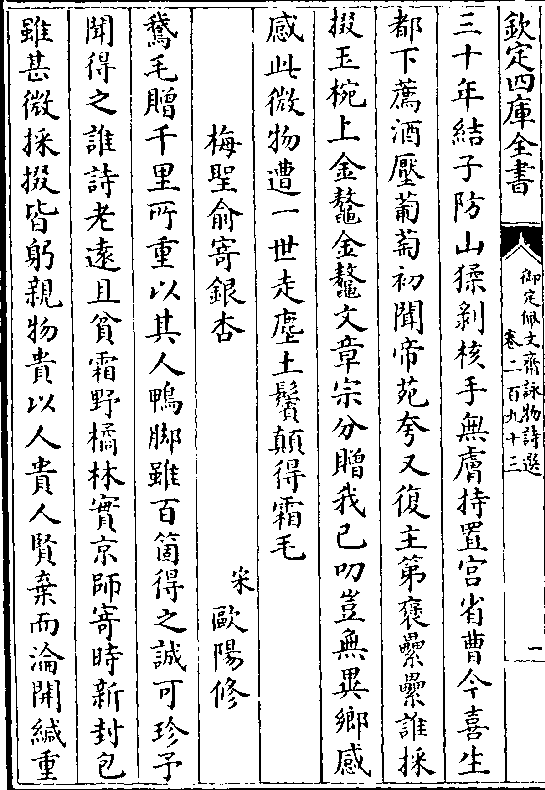 欽定四庫全書
御定佩文齋詠物詩選
卷二百九十三
一
三十年結子防山猱剝核手無膚持置宫省曹今喜生
都下薦酒壓葡萄初聞帝苑夸又復主第褒纍纍誰採
掇玉椀上金鼇金鼇文章宗分贈我已叨豈無異鄉感
感此微物遭一世走塵土鬢顛得霜毛
梅聖俞寄銀杏
宋歐陽修
鵞毛贈千里所重以其人鴨脚雖百箇得之誠可珍予
聞得之誰詩老遠且貧霜野橘林實京師寄時新封包
雖甚微採掇皆躬親物貴以人貴人賢棄而淪開緘重